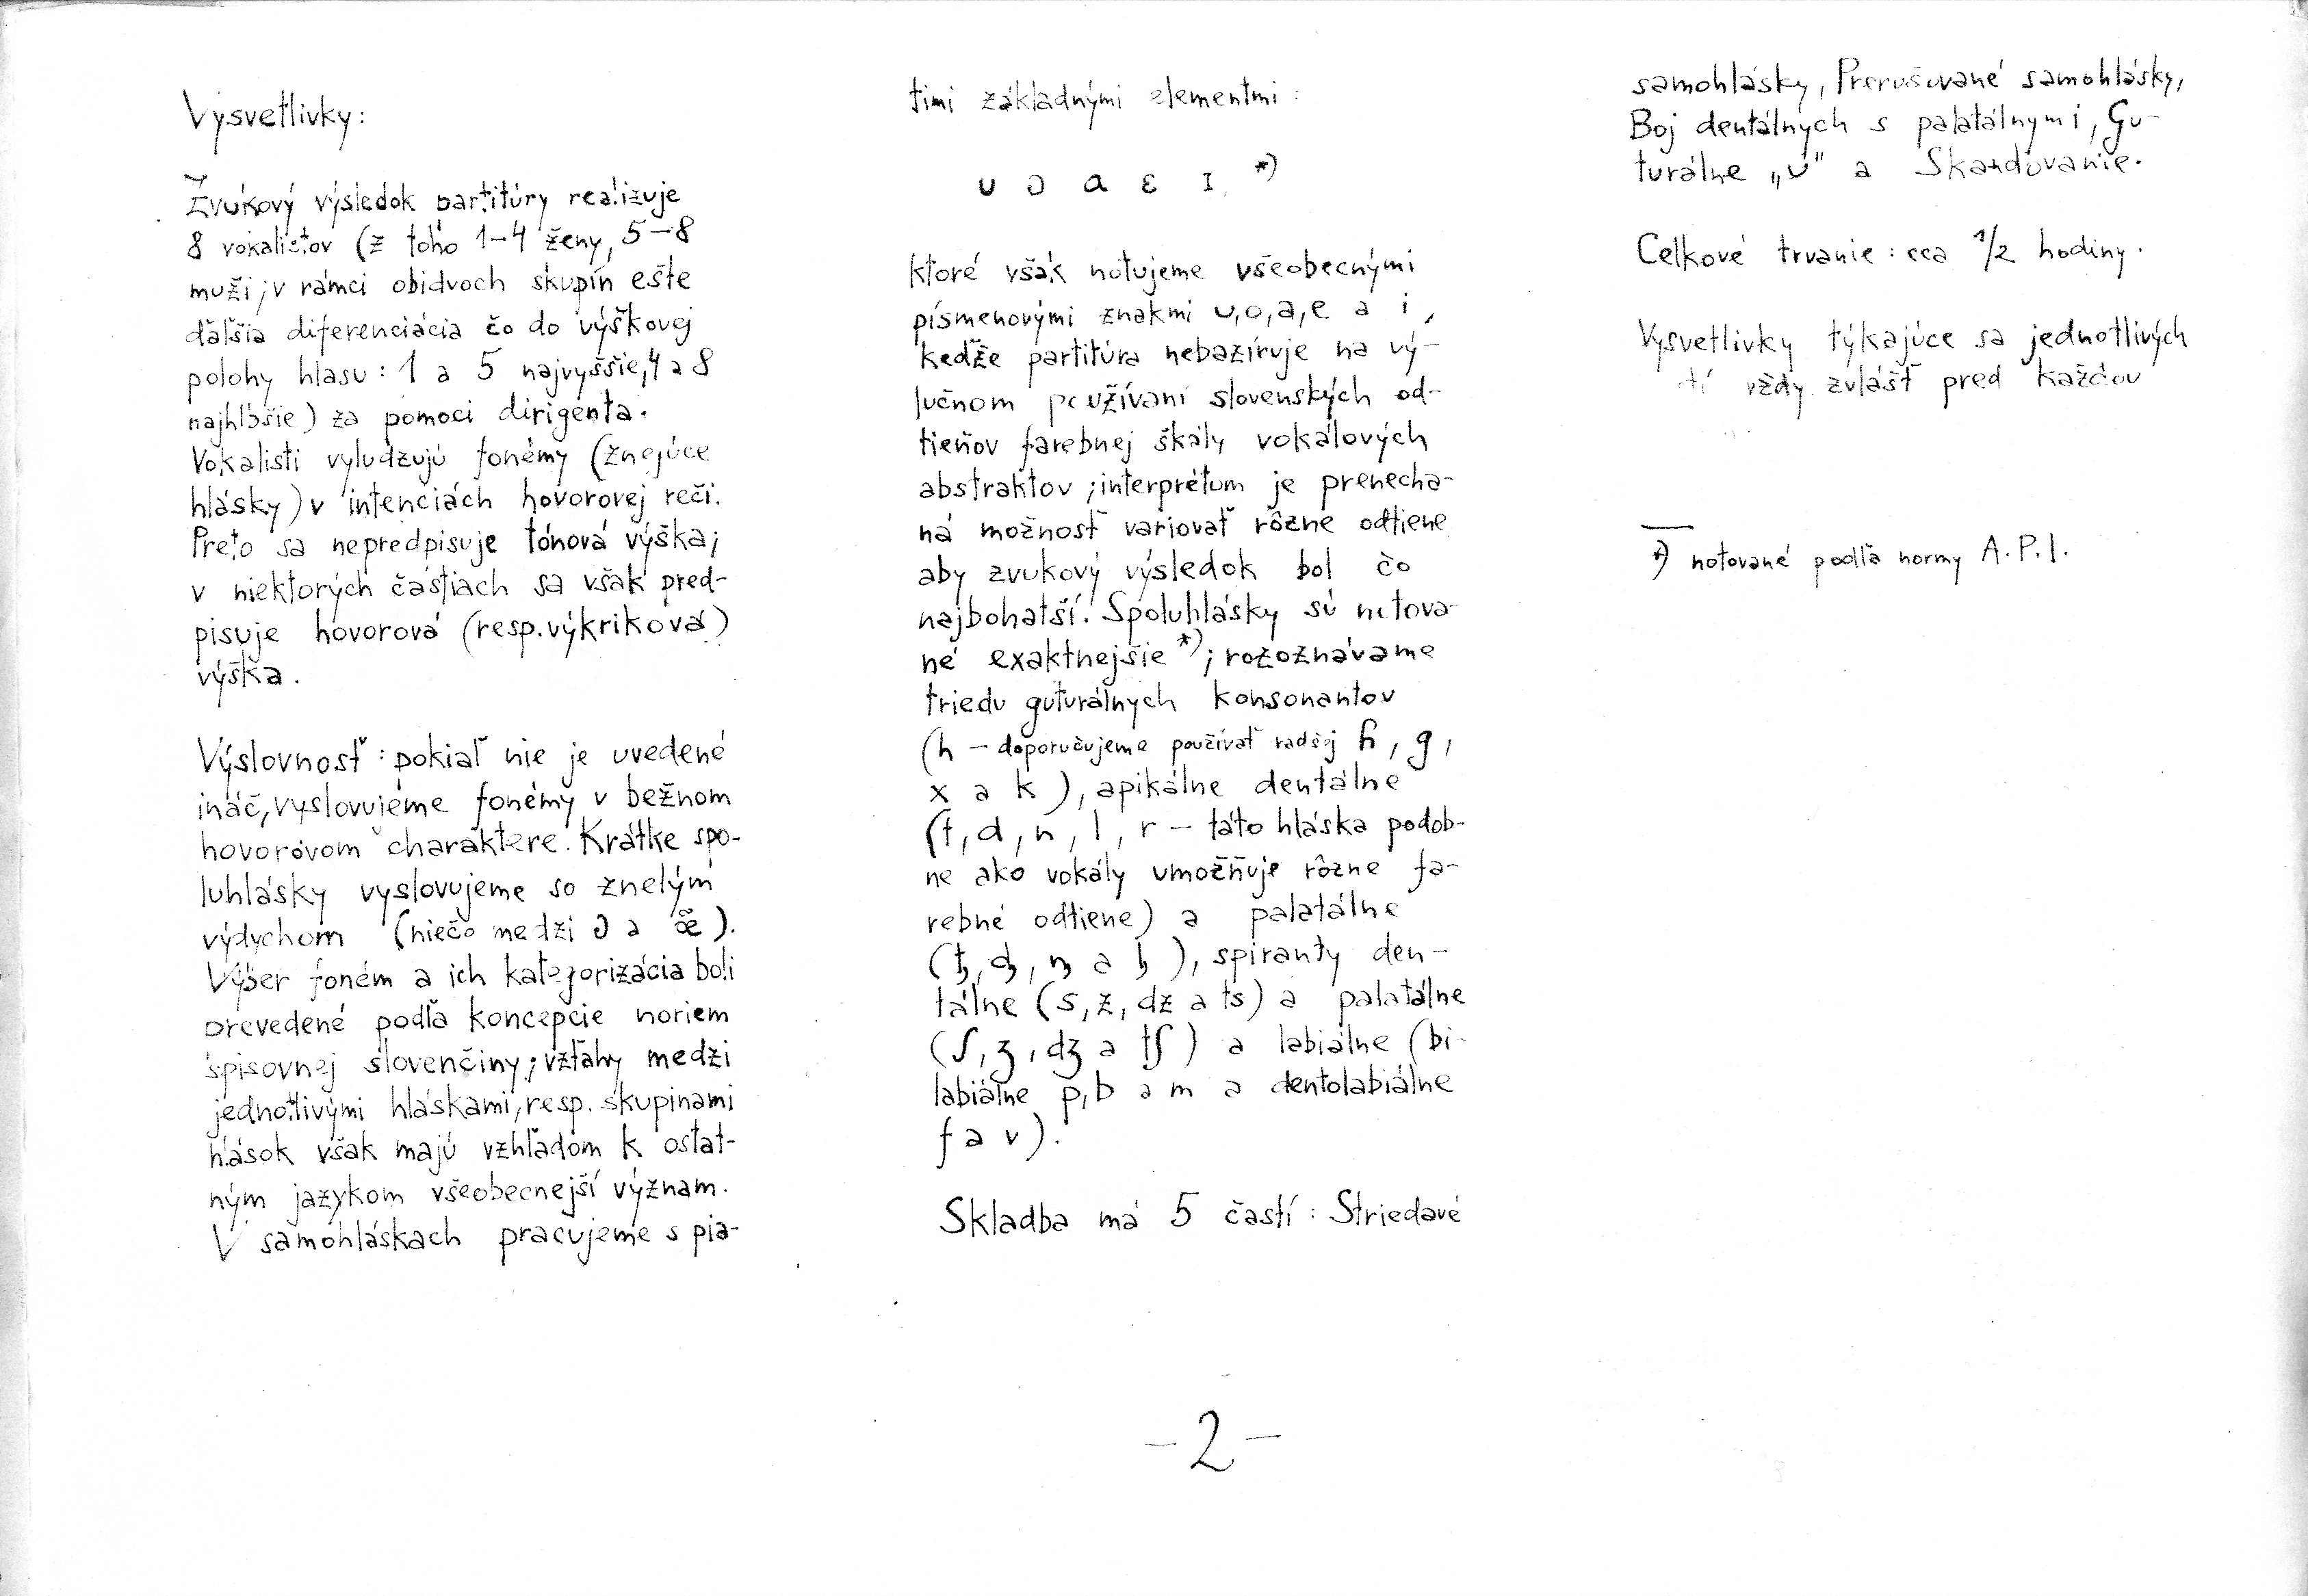 Vysvetlivky:
Zvukový výsledok partitúry realizuje
8 vokalistov (z toho 1–4 ženy, 5–8
muži; v rámci obidvoch skupín ešte
ďalšia diferenciácia čo do výškovej
polohy hlasu: 1 a 5 najvyššie, 4 a 8
najhlbšie) za pomoci dirigenta.
Vokalisti vyludzujú fonémy (znejúce
hlásky) v intenciách hovorovej reči.
Preto sa nepredpisuje tónová výška;
v niektorých častiach sa však pred-
pisuje hovorová (resp. výkriková)
výška.
Výslovnosť: pokiaľ nie je uvedené
ináč, vyslovujeme fonémy v bežnom
hovorovom charaktere. Krátke spo-
luhlásky vyslovujeme so znelým
výdychom (niečo medzi ə a œ̃).
Výber foném a ich kategorizácia boli
prevedené podľa koncepcie noriem
spisovnej slovenčiny; vzťahy medzi
jednotlivými hláskami, resp. skupinami
hlások však majú vzhľadom k ostat-
ným jazykom všeobecnejší význam.
V samohláskach pracujeme s pia-
timi základnými elementmi:
ʊ ɔ a ɛ ɪ *)
ktoré však notujeme všeobecnými
písmenovými znakmi u, o, a, e a i,
keďže partitúra nebazíruje na vý-
lučnom používaní slovenských od-
tieňov farebnej škály vokálových
abstraktov; interprétum je prenecha-
ná možnosť variovať rôzne odtiene
aby zvukový výsledok bol čo
najbohatší. Spoluhlásky sú notova-
né exaktnejšie *); rozoznávame
triedu guturálnych konsonantov
(h – doporučujeme používať radšej ɦ, g,
x a k), apikálne dentálne
(t, d, n, l, r – táto hláska podob-
ne ako vokály umožňuje rôzne fa-
rebné odtiene) a palatálne
(ƫ, ᶁ, ᶇ a ᶅ), spiranty den-
tálne (s, z, dz a ts) a palatálne
(ʃ, ʒ, dʒ a tʃ) a labiálne (bi-
labiálne p, b a m a dentolabiálne
f a v).
Skladba má 5 častí: Striedavé
samohlásky, Prerušované samohlásky,
Boj dentálnych s palatálnymi, Gu-
turálne „U" a Skandovanie.
Celkové trvanie: cca 1/2 hodiny.
Vysvetlivky týkajúce sa jednotlivých
vždy zvlášť pred každou
*) notované podľa normy A.P.I.
–2–